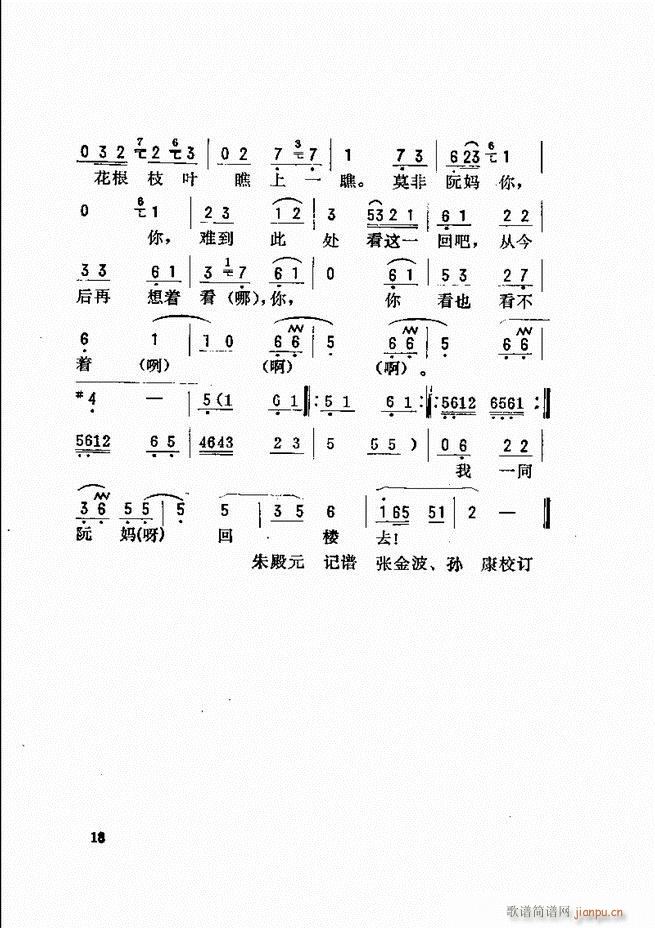 0 3 2 7 七2 6 七3 | 0 2 7 3 七7 | 1 7 3 | 6 23 6 七1 |
花根 枝叶 瞧 上一 瞧。 莫非 阮妈 你,
0 6 七1 | 2 3 1 2 | 3 5321 | 6 1 2 2 |
你, 难到 此 处 看这一 回吧, 从今
3 3 6 1 | 3 1 七7 6 1 | 0 6 1 | 5 3 2 7 |
后再 想着 看(哪), 你, 你 看也 看不
6 1 | 1 0 6 6 | 5 6 6 | 5 6 6 |
着 (咧) (啊) (啊)。
#4 — | 5 (1 6 1 ‖: 5 1 6 1 :‖: 5612 6561 :‖
5612 6 5 | 4643 2 3 | 5 5 5 ) | 0 6 2 2 |
我 一同
3 6 5 5 | 5 5 | 3 5 6 | 165 51 | 2 — ‖
阮 妈(呀) 回 楼 去!
朱殿元 记谱 张金波、孙 康校订
18
歌谱简谱网 jianpu.cn